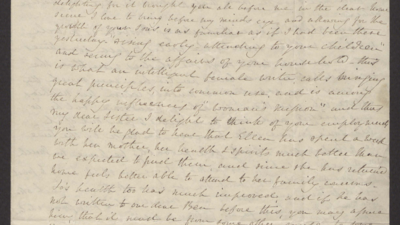 delighting for it brought you all before me, in the dear home
scene I love to bring before my minds eye, and asking for the
growth of your Pear tree familiar as if I had been there
yesterday, seeing early, attending to your children
and seeing to the affairs of your household, this
is what an intelligent female writer calls bringing
great principles into common use, and is among
the happy influences of woman's mission" and thus
my dear Sister I delight to think of your employments
You will be glad to know that Ellen has spent a week
with her mother, her health & spirits much better than
we expected to find them, and since she has returned
home feels better able to attend to her family concerns.
his health too has much improved, and if he has
not written to our dear before this, you may assure
him that it must be from some other